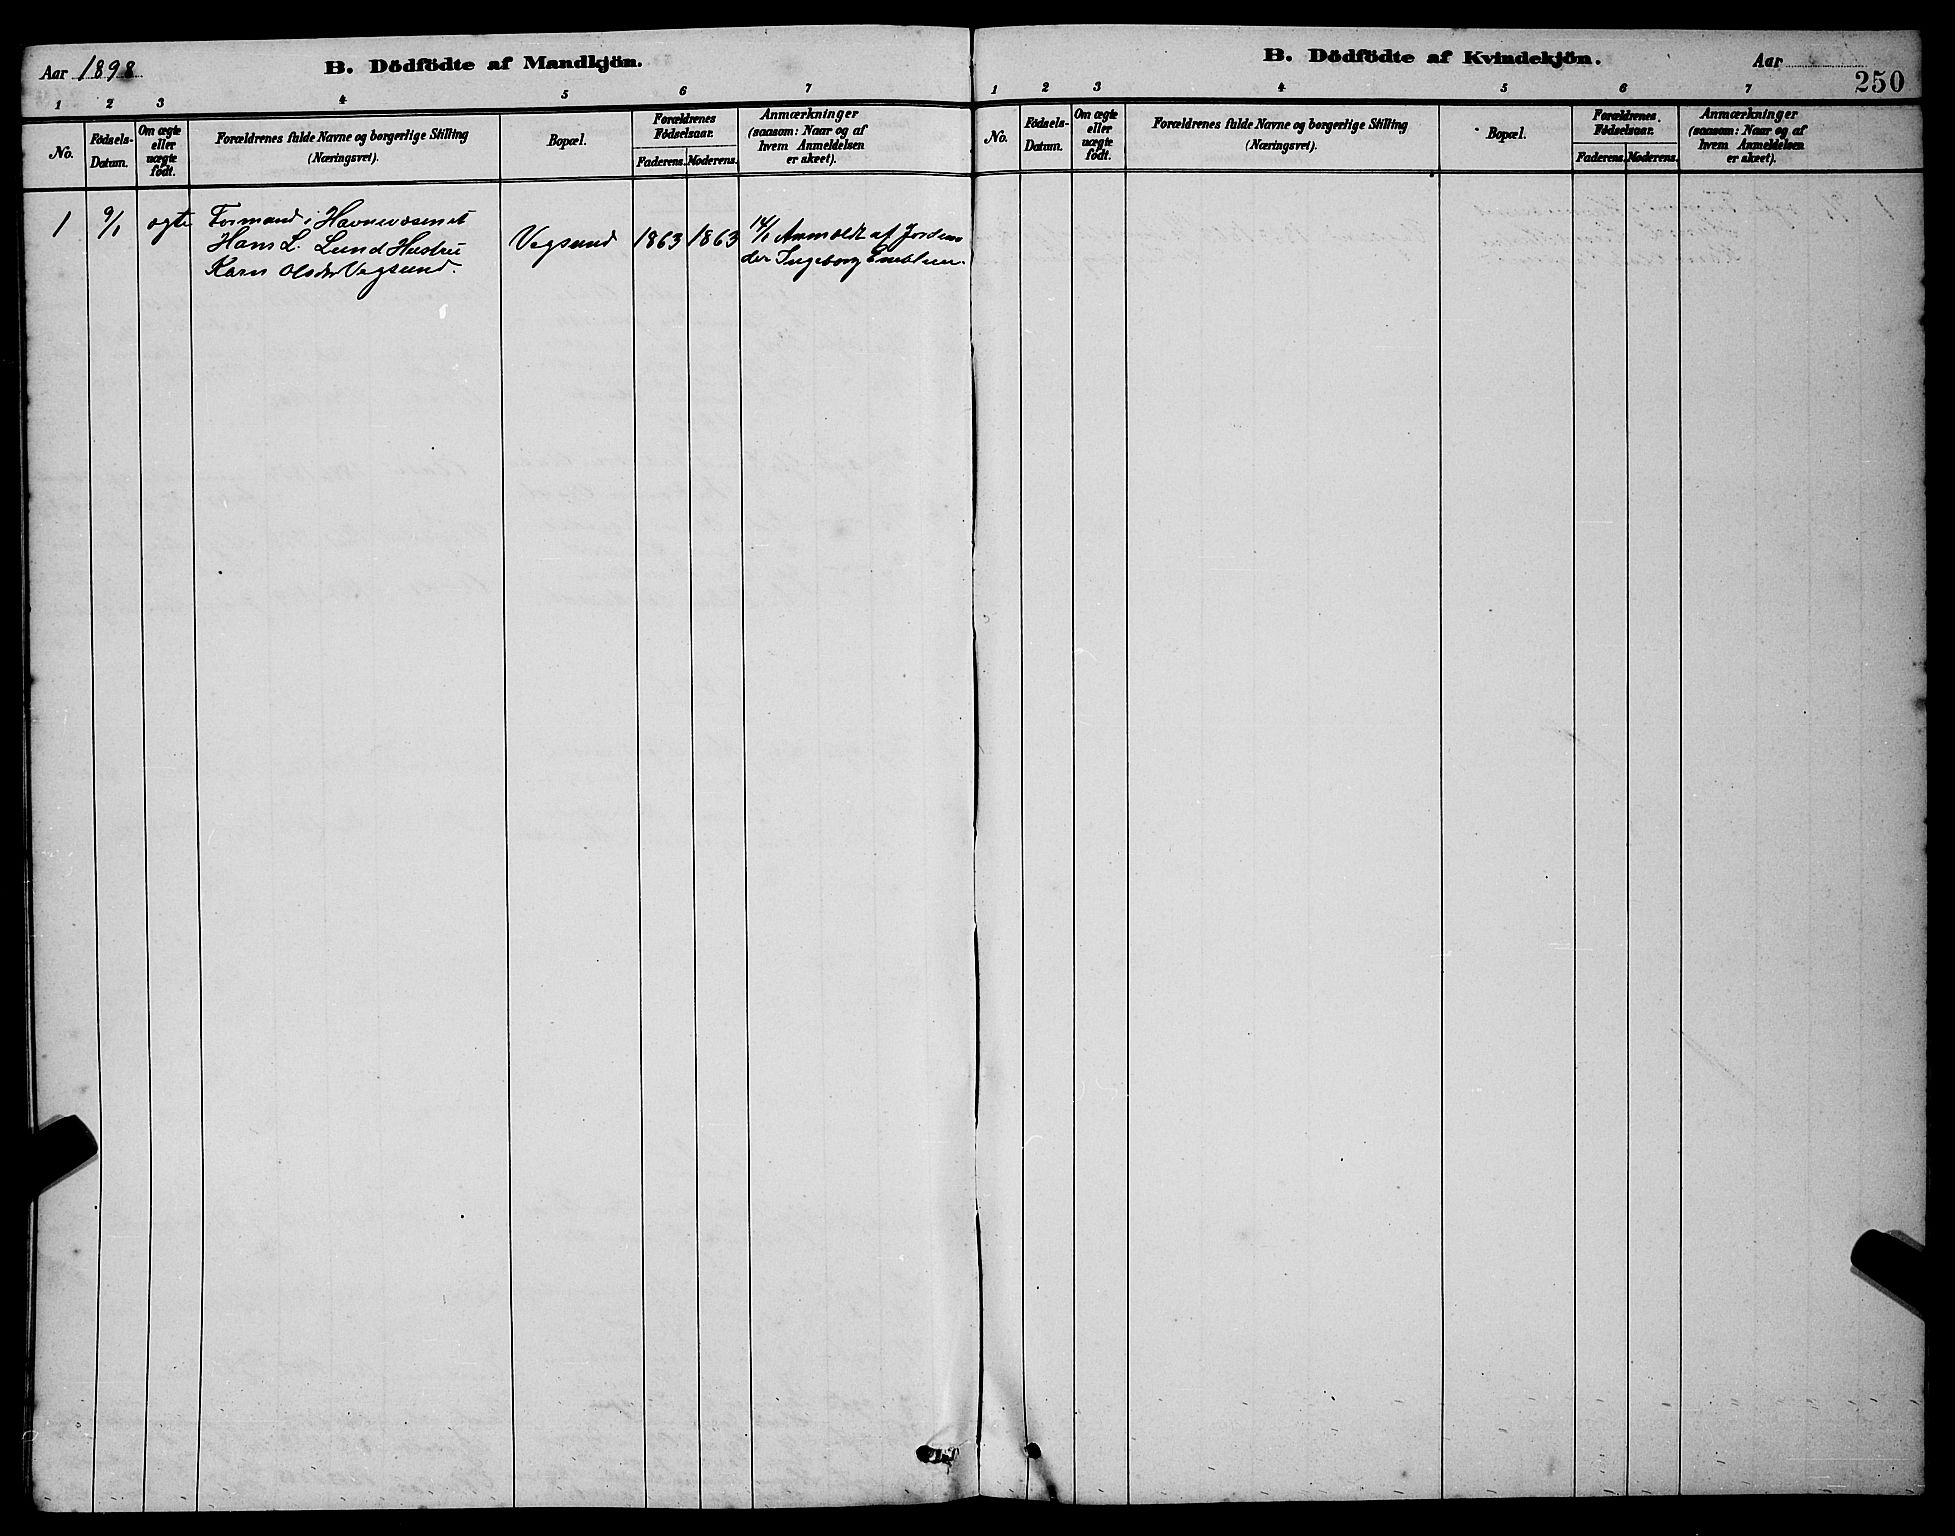 Aar 1898
B. Dödfödte af Mandkjön.
1 2 3 4 5 6 7
No.
Födsels-
Datum.
Om ægte
eller
uægte
født.
Forældrenes fulde Navne og borgerlige Stilling
(Næringsvei).
Bopæl.
Forældrenes
Födselsaar.
Faderens. Moderens.
Anmærkninger
(saasom: Naar og af
hvem Anmeldelsen
er skeet).
1
9/1
ægte
Formand i Havnevæsenet
Hans L. Lund Hustru
Karn Olsdtr Vegsund.
Vegsund
1863 1863
14/1 Anmeldt af Jordemo
der Ingeborg Emblem.
B. Dödfödte af Kvindekjön.
Aar
250
1 2 3 4 5 6 7
No.
Födsels-
Datum.
Om ægte
eller
uægte
født.
Forældrenes fulde Navne og borgerlige Stilling
(Næringsvei).
Bopæl.
Forældrenes
Födselsaar.
Faderens. Moderens.
Anmærkninger
(saasom: Naar og af
hvem Anmeldelsen
er skeet).